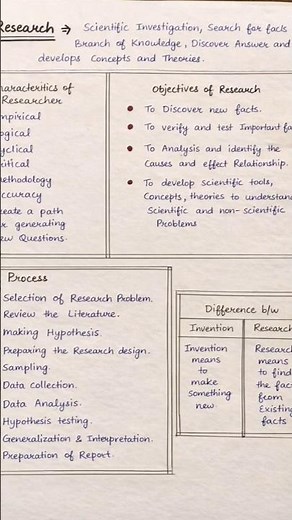 Research → Scientific Investigation, Search for facts
Branch of Knowledge, Discover Answer and
develops Concepts and Theories.
Researcher
Objectives of Research
• To Discover new facts.
• To verify and test Important
• To Analysis and identify the
Causes and effect Relationship.
• To develop Scientific tools,
Concepts, theories to understand
Scientific and non-Scientific
Problems
Process
Selection of Research Problem.
Review the Literature.
Making Hypothesis.
Preparing the Research design.
Sampling.
Data Collection.
Data Analysis.
Hypothesis testing.
Generalization & Interpretation.
Preparation of Report.
Difference b/w
Invention
Invention
means
to
make
something
new
Research
Research
means
to find
the
from
Existing
facts